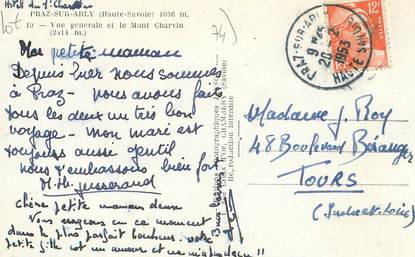 Hôtel du Mt Charvin
PRAZ-SUR-ARLY (Haute-Savoie) 1036 m.
10 - Vue générale et le Mont Charvin
(2414 m.)
lot
74)
Ma petite maman
Depuis hier nous sommes
à Praz - nous avons fait
tous les deux un très bon
voyage - mon mari est
toujours aussi gentil
nous t'embrassons bien fort
Chère petite maman
Nous nageons en ce moment
dans le plus parfait bonheur. votre
petite fille est un amour et ne m'a
Bons baisers
PRAZ-SUR-ARLY
HAUTE SAVOIE
1953
12F
Madame J. Roy
48 Boulevard Béranger
TOURS
(Indre et Loire)